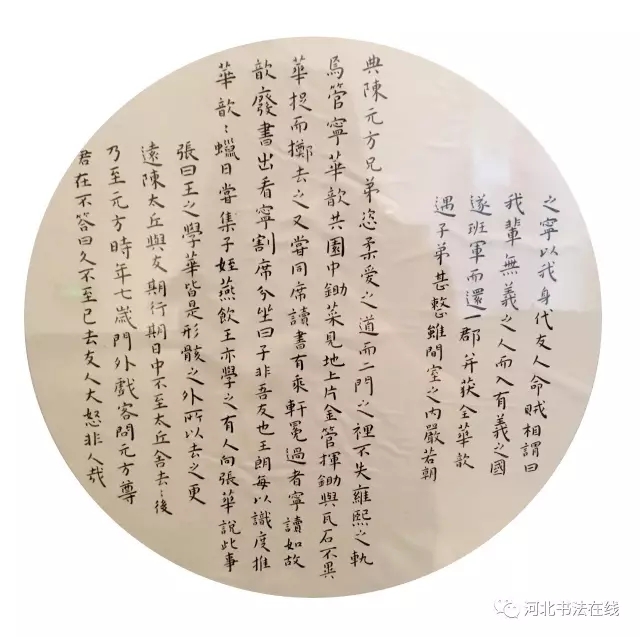 之寧以我身代友人命賊相謂曰
我輩無義之人而入有義之國
遂班軍而還一郡并获全華歆
遇子弟甚整雖閒室之内嚴若朝
典陳元方兄弟恣柔爱之道而二門之裡不失雍熙之軌
焉管寧華歆共園中鋤菜見地上片金管揮鋤與瓦石不異
華捉而擲去之又嘗同席讀書有乘軒冕過者寧讀如故
歆廢書出看寧割席分坐曰子非吾友也王朗每以識度推
華歆：蠟日嘗集子姪燕飲王亦學之有人向張華說此事
張曰王之學華皆是形骸之外所以去之更
遠陳太丘與友期行期日中不至太丘舍去：後
乃至元方時年七歲門外戲客問元方尊
君在不答曰久不至已去友人大怒非人哉
河北书法在线